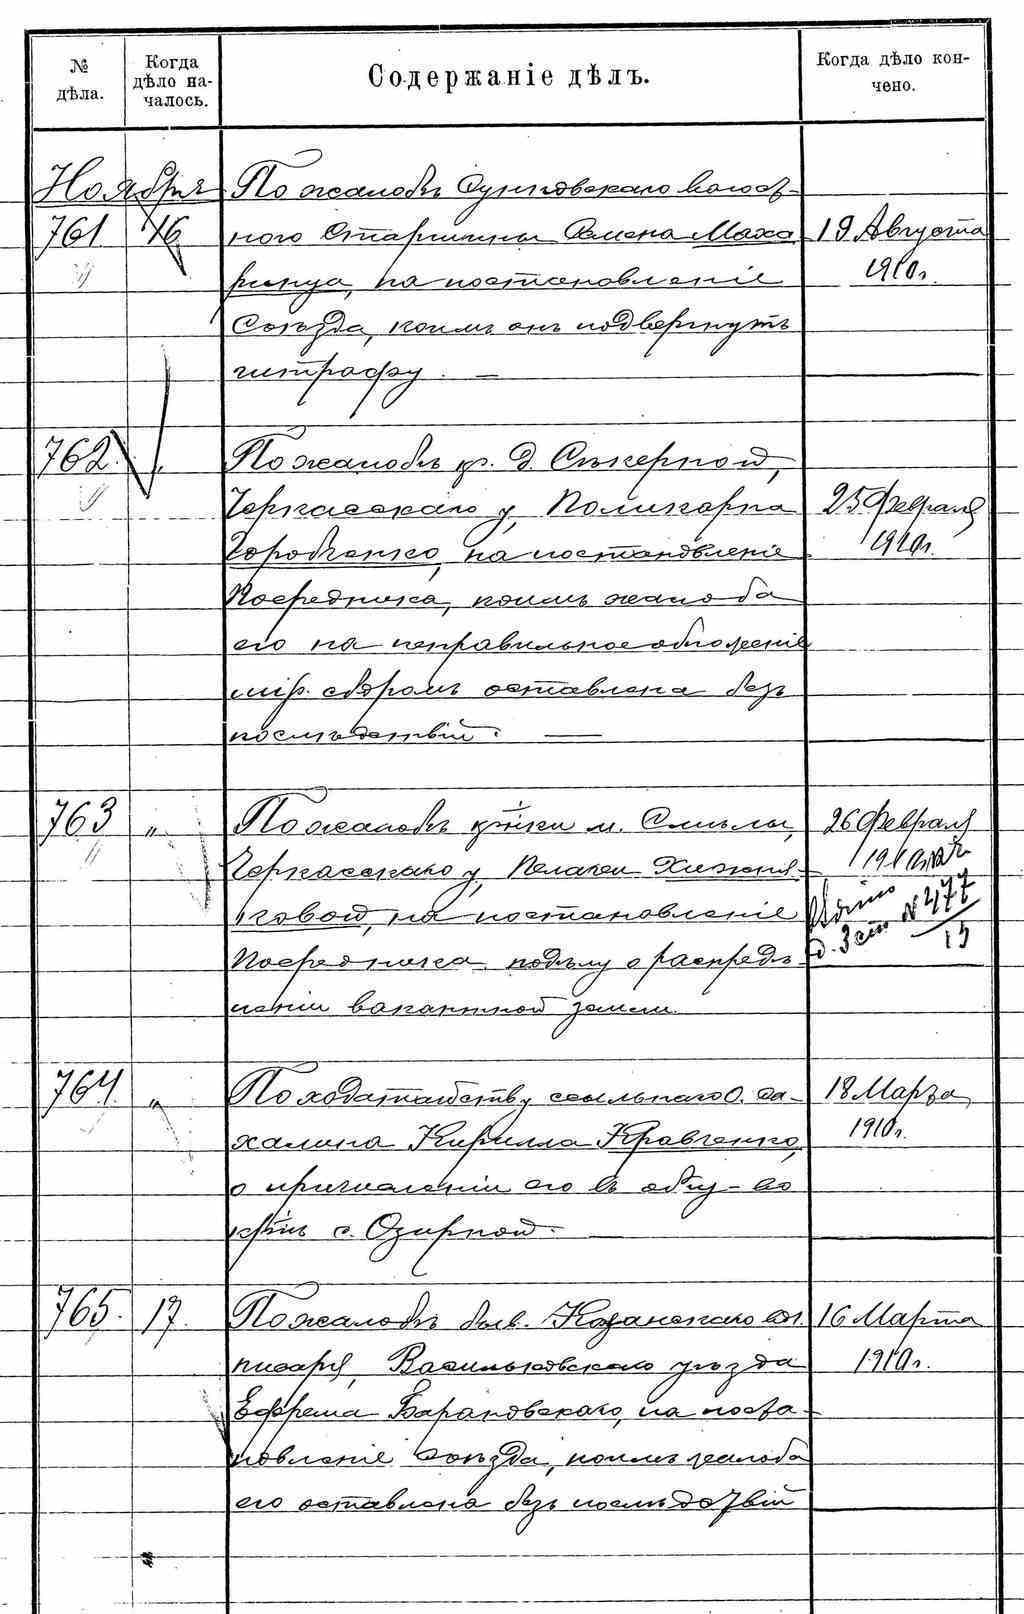 №
дѣла.
Когда
дѣло на-
чалось.
Содержаніе дѣлъ.
Когда дѣло кон-
чено.
Ноября
761 16
По жалобѣ Сунковскаго волост-
ного Старшины Семена Маха
ринца, на постановленіе
Съѣзда, коимъ онъ подвергнутъ
штрафу. —
19 Августа
1910 г.
762. "
По жалобѣ кр. д. Сѣкерной,
Черкасскаго у, Поликарпа
Горобченко, на постановленіе
Посредника, коимъ жалоба
его на неправильное обложеніе
мір. сборомъ оставлена безъ
послѣдствій. —
25 Февраля
1910 г.
763 "
По жалобѣ кр̃нки м. Смѣлы,
Черкасскаго у, Пелагеи Хижня-
ковой, на постановленіе
Посредника по дѣлу о распредѣ-
леніи вакантной земли.
26 Февраля
1910
д. 3 ст № 477
15
764. "
По ходатайству ссыльнаго о. Са-
халина Кирилла Кравченко,
о причисленіи его въ общ-во
кр̃нъ с. Озирной. —
18 Марта
1910 г.
765. 17.
По жалобѣ быв. Казанскаго вол.
писаря, Васильковскаго уѣзда
Ефрема Барановскаго, на поста-
новленіе Съѣзда, коимъ жалоба
его оставлена безъ послѣдствій
16 Марта
1910 г.